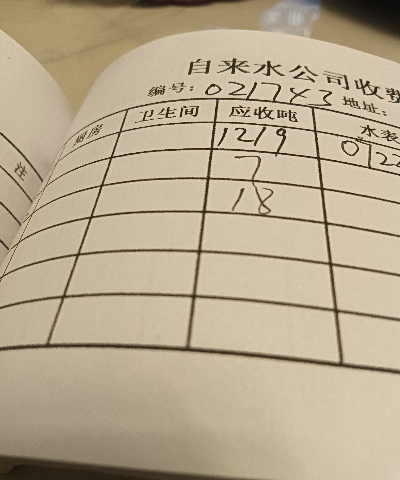 自来水公司收费
编号: 021743 地址:
厨房 卫生间 应收吨 水表
1219
7
18
注